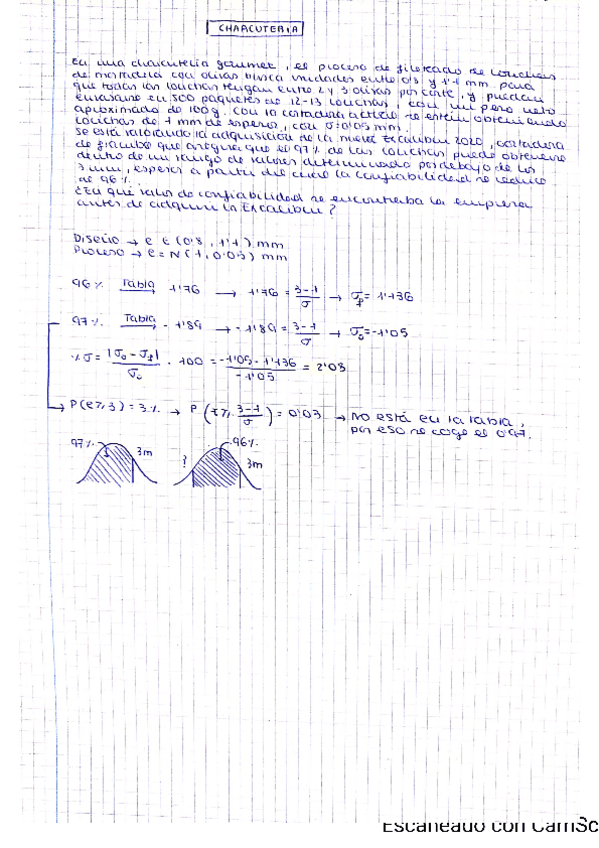 CHARCUTERIA
En una charcutería gourmet, el proceso de fileteado de lonchas
de mortadela con olivas busca unidades entre 0'8 y 1'1 mm para
que todas las lonchas tengan entre 2 y 3 olivas por corte, y puedan
envasarse en 500 paquetes de 12-13 lonchas, con un peso neto
aproximado de 100g. Con la cortadora actual se están obteniendo
lonchas de 1 mm de espesor, con σ=0'03 mm.
Se está valorando la adquisición de la nueva Excalibur 2020, cortadora
de fiambre que asegura que el 97% de las lonchas puede obtenerse
dentro de un rango de valores determinado por debajo de los
3 mm, espesor a partir del cual la confiabilidad se reduce
al 96%.
¿En qué valor de confiabilidad se encontraba la empresa
antes de adquirir la Excalibur?
Diseño → e ∈ (0'8, 1'1) mm
Proceso → e = N(1, 0'03) mm
96% Tabla → 1'76 → 1'76 = 3-1/σ → σf = 1'136
97% Tabla → -1'89 → -1'89 = 3-1/σ → σo = -1'05
%σ = |σo - σf|/σo · 100 = -1'05 - 1'136/-1'05 = 2'08
→ P(e≥3) = 3% → P(z≥ 3-1/σ) = 0'03 → No está en la tabla,
por eso se coge el 0'97.
97% 3m ? 96% 3m
Escaneado con CamSc